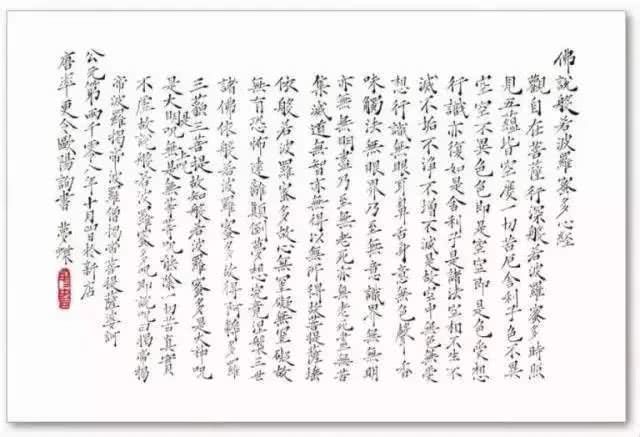 佛說般若波羅蜜多心經
觀自在菩薩行深般若波羅蜜多時照
見五蘊皆空度一切苦厄舍利子色不異
空空不異色色即是空空即是色受想
行識亦復如是舍利子是諸法空相不生不
滅不垢不淨不增不減是故空中無色無受
想行識無眼耳鼻舌身意無色聲香
味觸法無眼界乃至無意識界無無明
亦無無明盡乃至無老死亦無老死盡無苦
集滅道無智亦無得以無所得故菩提薩埵
依般若波羅蜜多故心無罣礙無罣礙故
無有恐怖遠離顛倒夢想究竟涅槃三世
諸佛依般若波羅蜜多故得阿耨多羅
三藐三菩提故知般若波羅蜜多是大神咒
是大明咒是無上咒是無等等咒能除一切苦真實
不虛故說般若波羅蜜多咒即說咒曰揭帝揭
帝波羅揭帝波羅僧揭帝菩提薩婆訶
公元第兩千零八年十月四日於新店
唐率更令歐陽詢書 夢蝶